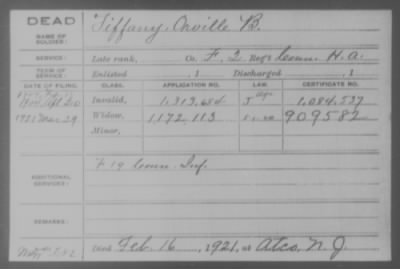 DEAD
NAME OF SOLDIER:
Tiffany, Orville B.
SERVICE:
Late rank, Co. F, 2 Reg't Conn. H.A.
TERM OF SERVICE:
Enlisted , 1 Discharged , 1
DATE OF FILING. CLASS. APPLICATION NO. LAW. CERTIFICATE NO.
Invalid, 1,313,684 1,084,537
1921 Mar 29 Widow, 1172 113 909582
Minor,
F 19 Conn. Inf.
ADDITIONAL SERVICES:
REMARKS:
Died Feb. 16, 1921, at Atco, N.J.